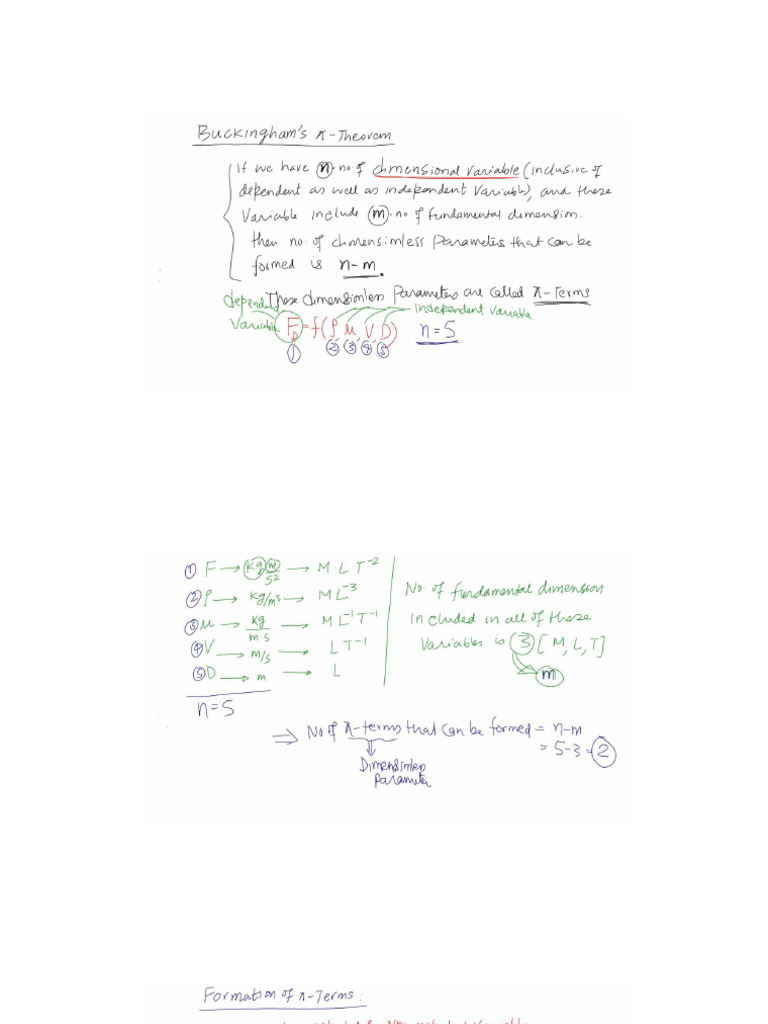 Buckingham's π-Theorem
If we have n no. of dimensional variable (inclusive of
dependent as well as independent variable), and these
variable include m no. of fundamental dimension.
then no. of dimensimless parameters that can be
formed is n-m.
These dimensimless parameters are called π-Terms
dependent
variable F_D = f(ρ, μ, V, D) independent variable n=5
① ② ③ ④ ⑤
① F → kg m/s² → M·L T⁻²
② ρ → kg/m³ → M L⁻³
③ μ → kg/m·s → M L⁻¹ T⁻¹
④ V → m/s → L T⁻¹
⑤ D → m → L
n=5
No. of fundamental dimension
included in all of these
variables is ③ [M, L, T]
m
⇒ No. of π-terms that can be formed = n-m
= 5-3 = ②
Dimensimless
Parameter
Formation of π-Terms: